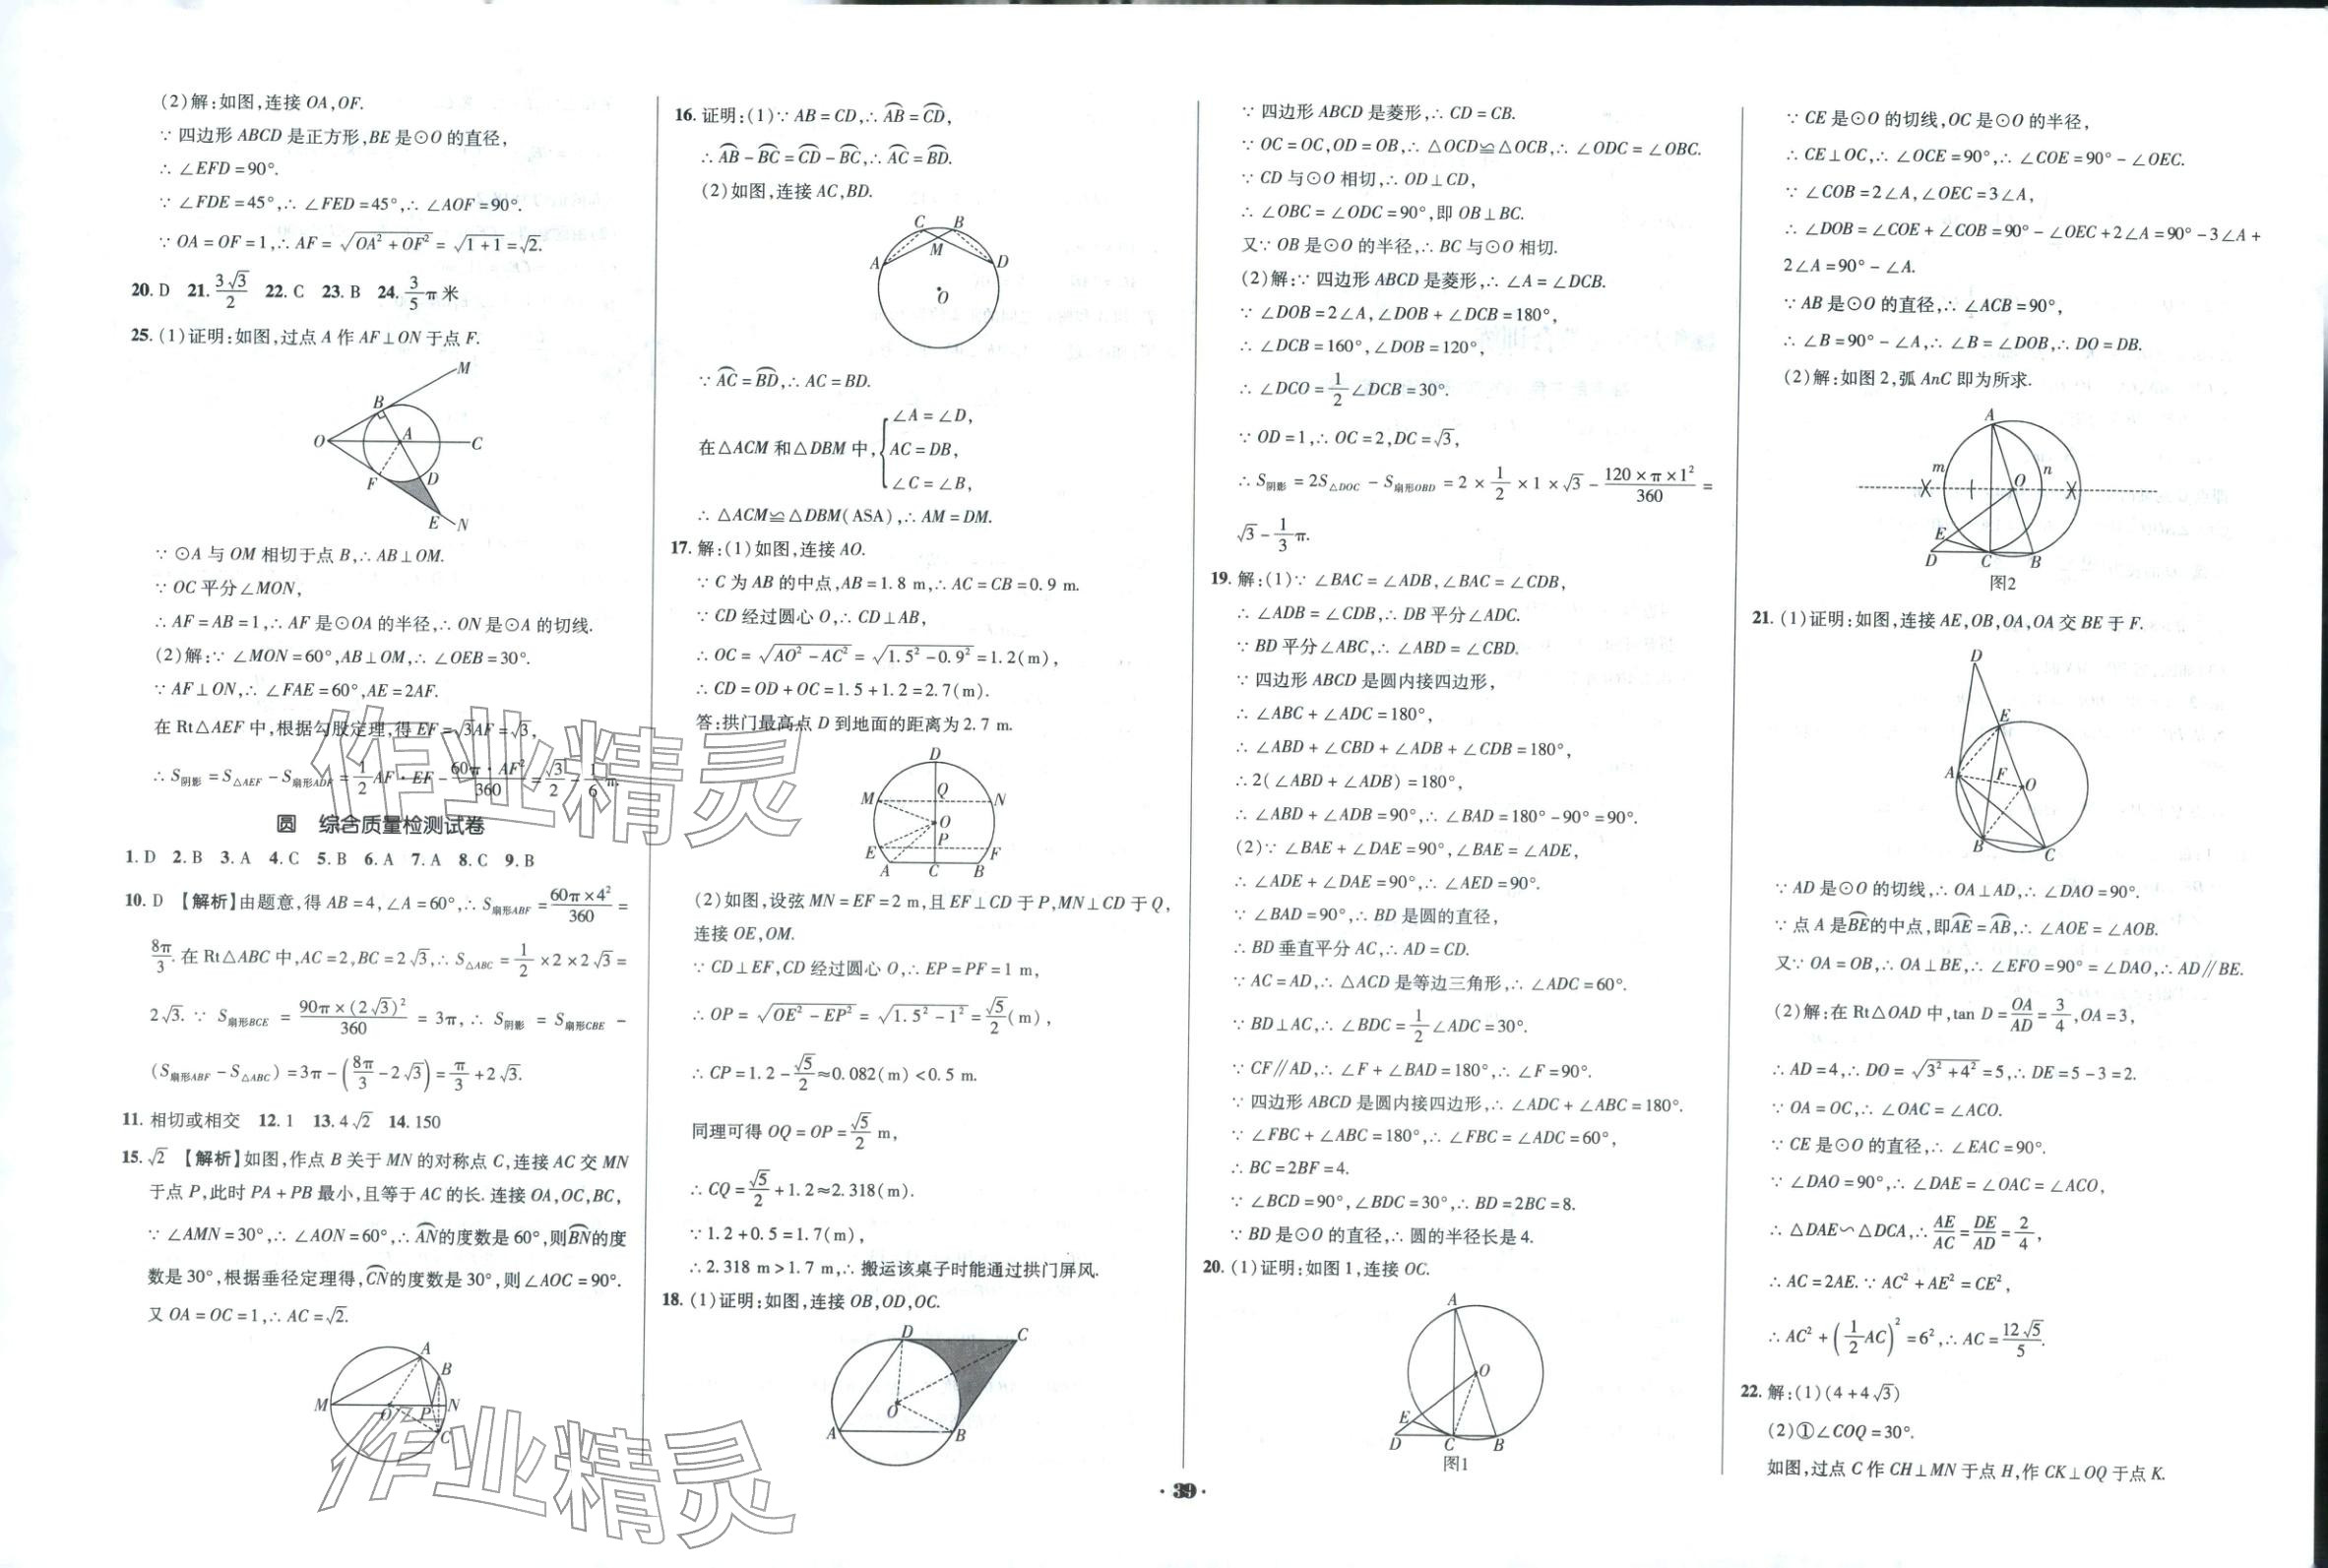 (2)解:如图,连接 OA,OF.
∵ 四边形 ABCD 是正方形,BE 是⊙O 的直径,
∴ ∠EFD=90°.
∵ ∠FDE=45°,∴ ∠FED=45°,∴ ∠AOF=90°.
∵ OA=OF=1,∴ AF=√(OA²+OF²)=√(1+1)=√2.
20. D 21. 3√3/2 22. C 23. B 24. 3/5 π 米
25. (1)证明:如图,过点 A 作 AF⊥ON 于点 F.
M
B
O A C
F D
E N
∵ ⊙A 与 OM 相切于点 B,∴ AB⊥OM.
∵ OC 平分∠MON,
∴ AF=AB=1,∴ AF 是⊙OA 的半径,∴ ON 是⊙A 的切线.
(2)解:∵ ∠MON=60°,AB⊥OM,∴ ∠OEB=30°.
∵ AF⊥ON,∴ ∠FAE=60°,AE=2AF.
在 Rt△AEF 中,根据勾股定理,得 EF=√3AF=√3,
∴ S阴影=S△AEF-S扇形ADF=1/2 AF·EF-60π·AF²/360=√3/2-1/6 π.
圆 综合质量检测试卷
1. D 2. B 3. A 4. C 5. B 6. A 7. A 8. C 9. B
10. D 【解析】由题意,得 AB=4,∠A=60°,∴ S扇形ABF=60π×4²/360=
8π/3. 在 Rt△ABC 中,AC=2,BC=2√3,∴ S△ABC=1/2×2×2√3=
2√3. ∵ S扇形BCE=90π×(2√3)²/360=3π,∴ S阴影=S扇形CBE-
(S扇形ABF-S△ABC)=3π-(8π/3-2√3)=π/3+2√3.
11. 相切或相交 12. 1 13. 4√2 14. 150
15. √2 【解析】如图,作点 B 关于 MN 的对称点 C,连接 AC 交 MN
于点 P,此时 PA+PB 最小,且等于 AC 的长. 连接 OA,OC,BC,
∵ ∠AMN=30°,∴ ∠AON=60°,∴ ⌒AN的度数是 60°,则⌒BN的度
数是 30°,根据垂径定理得,⌒CN的度数是 30°,则∠AOC=90°.
又 OA=OC=1,∴ AC=√2.
A
B
M O P N
C
16. 证明:(1)∵ AB=CD,∴ ⌒AB=⌒CD,
∴ ⌒AB-⌒BC=⌒CD-⌒BC,∴ ⌒AC=⌒BD.
(2)如图,连接 AC,BD.
C B
M
A D
O
∵ ⌒AC=⌒BD,∴ AC=BD.
在△ACM 和△DBM 中,{∠A=∠D,
AC=DB,
∠C=∠B,
∴ △ACM≌△DBM(ASA),∴ AM=DM.
17. 解:(1)如图,连接 AO.
∵ C 为 AB 的中点,AB=1.8 m,∴ AC=CB=0.9 m.
∵ CD 经过圆心 O,∴ CD⊥AB,
∴ OC=√(AO²-AC²)=√(1.5²-0.9²)=1.2(m),
∴ CD=OD+OC=1.5+1.2=2.7(m).
答:拱门最高点 D 到地面的距离为 2.7 m.
D
M Q N
O
E P F
A C B
(2)如图,设弦 MN=EF=2 m,且 EF⊥CD 于 P,MN⊥CD 于 Q,
连接 OE,OM.
∵ CD⊥EF,CD 经过圆心 O,∴ EP=PF=1 m,
∴ OP=√(OE²-EP²)=√(1.5²-1²)=√5/2(m),
∴ CP=1.2-√5/2≈0.082(m)<0.5 m.
同理可得 OQ=OP=√5/2 m,
∴ CQ=√5/2+1.2≈2.318(m).
∵ 1.2+0.5=1.7(m),
∴ 2.318 m>1.7 m,∴ 搬运该桌子时能通过拱门屏风.
18. (1)证明:如图,连接 OB,OD,OC.
D C
O
A B
∵ 四边形 ABCD 是菱形,∴ CD=CB.
∵ OC=OC,OD=OB,∴ △OCD≌△OCB,∴ ∠ODC=∠OBC.
∵ CD 与⊙O 相切,∴ OD⊥CD,
∴ ∠OBC=∠ODC=90°,即 OB⊥BC.
又∵ OB 是⊙O 的半径,∴ BC 与⊙O 相切.
(2)解:∵ 四边形 ABCD 是菱形,∴ ∠A=∠DCB.
∵ ∠DOB=2∠A,∠DOB+∠DCB=180°,
∴ ∠DCB=160°,∠DOB=120°,
∴ ∠DCO=1/2∠DCB=30°.
∵ OD=1,∴ OC=2,DC=√3,
∴ S阴影=2S△DOC-S扇形OBD=2×1/2×1×√3-120×π×1²/360=
√3-1/3 π.
19. 解:(1)∵ ∠BAC=∠ADB,∠BAC=∠CDB,
∴ ∠ADB=∠CDB,∴ DB 平分∠ADC.
∵ BD 平分∠ABC,∴ ∠ABD=∠CBD.
∵ 四边形 ABCD 是圆内接四边形,
∴ ∠ABC+∠ADC=180°,
∴ ∠ABD+∠CBD+∠ADB+∠CDB=180°,
∴ 2(∠ABD+∠ADB)=180°,
∴ ∠ABD+∠ADB=90°,∴ ∠BAD=180°-90°=90°.
(2)∵ ∠BAE+∠DAE=90°,∠BAE=∠ADE,
∴ ∠ADE+∠DAE=90°,∴ ∠AED=90°.
∵ ∠BAD=90°,∴ BD 是圆的直径,
∴ BD 垂直平分 AC,∴ AD=CD.
∵ AC=AD,∴ △ACD 是等边三角形,∴ ∠ADC=60°.
∵ BD⊥AC,∴ ∠BDC=1/2∠ADC=30°.
∵ CF∥AD,∴ ∠F+∠BAD=180°,∴ ∠F=90°.
∵ 四边形 ABCD 是圆内接四边形,∴ ∠ADC+∠ABC=180°.
∵ ∠FBC+∠ABC=180°,∴ ∠FBC=∠ADC=60°,
∴ BC=2BF=4.
∵ ∠BCD=90°,∠BDC=30°,∴ BD=2BC=8.
∵ BD 是⊙O 的直径,∴ 圆的半径长是 4.
20. (1)证明:如图 1,连接 OC.
A
O
E
D C B
图1
∵ CE 是⊙O 的切线,OC 是⊙O 的半径,
∴ CE⊥OC,∴ ∠OCE=90°,∴ ∠COE=90°-∠OEC.
∵ ∠COB=2∠A,∠OEC=3∠A,
∴ ∠DOB=∠COE+∠COB=90°-∠OEC+2∠A=90°-3∠A+
2∠A=90°-∠A.
∵ AB 是⊙O 的直径,∴ ∠ACB=90°,
∴ ∠B=90°-∠A,∴ ∠B=∠DOB,∴ DO=DB.
(2)解:如图 2,弧 AnC 即为所求.
A
m n
O
E
D C B
图2
21. (1)证明:如图,连接 AE,OB,OA,OA 交 BE 于 F.
D
E
A F O
B C
∵ AD 是⊙O 的切线,∴ OA⊥AD,∴ ∠DAO=90°.
∵ 点 A 是⌒BE的中点,即⌒AE=⌒AB,∴ ∠AOE=∠AOB.
又∵ OA=OB,∴ OA⊥BE,∴ ∠EFO=90°=∠DAO,∴ AD∥BE.
(2)解:在 Rt△OAD 中,tan D=OA/AD=3/4,OA=3,
∴ AD=4,∴ DO=√(3²+4²)=5,∴ DE=5-3=2.
∵ OA=OC,∴ ∠OAC=∠ACO.
∵ CE 是⊙O 的直径,∴ ∠EAC=90°.
∵ ∠DAO=90°,∴ ∠DAE=∠OAC=∠ACO,
∴ △DAE∽△DCA,∴ AE/AC=DE/AD=2/4,
∴ AC=2AE. ∵ AC²+AE²=CE²,
∴ AC²+(1/2 AC)²=6²,∴ AC=12√5/5.
22. 解:(1)(4+4√3)
(2)①∠COQ=30°.
如图,过点 C 作 CH⊥MN 于点 H,作 CK⊥OQ 于点 K.
· 39 ·
作业精灵
作业精灵